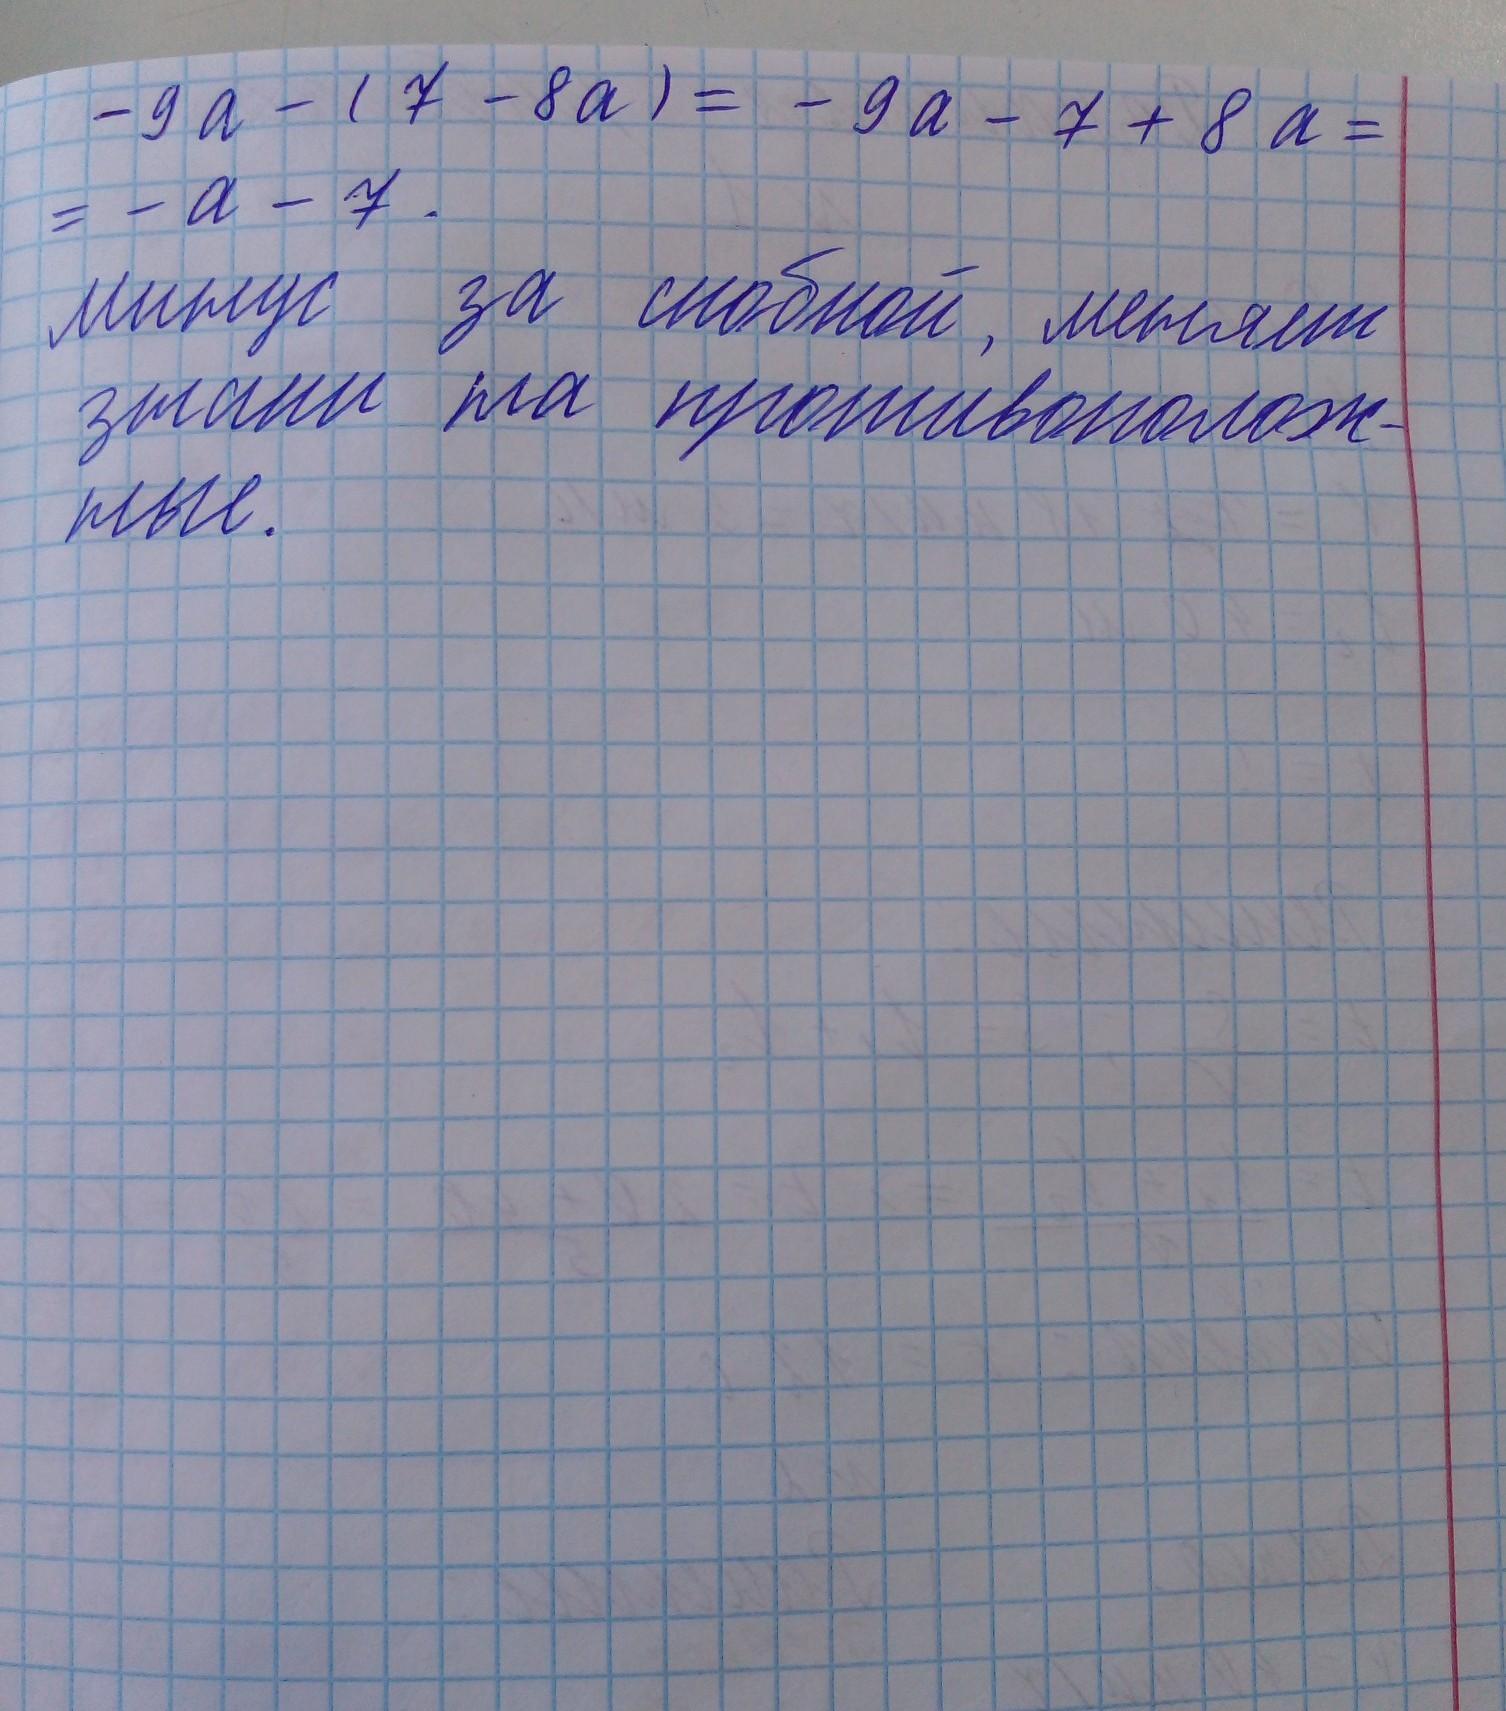 -9а - (7 - 8а) = -9а - 7 + 8а =
= -а - 7.
минус за скобкой, меняет
знаки на противополож-
ные.